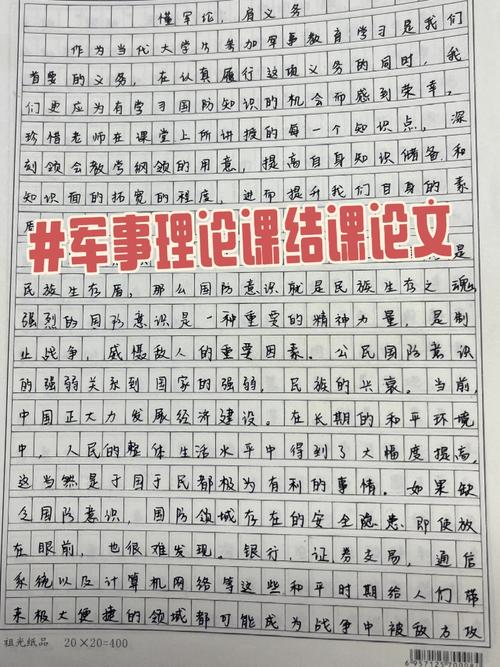 懂军论，有义务
作为当代大学生参加军事教育学习是我们
首要的义务，在认真履行这项义务的同时，我
们更应为有学习国防知识的机会而感到荣幸，
珍惜老师在课堂上所讲授的每一个知识点，深
刻领会教学纲领的用意，提高自身知识储备和
知识面的拓宽的程度，进而提升我们自身的素
#军事理论课结课论文
是
民族生存盾，那么国防意识就是民族生存之魂
强烈的国防意识是一种重要的精神力量，是制
止战争，威慑敌人的重要因素。公民国防意识
的强弱关系到国家的强弱，民族的兴衰。当前，
中国正大力发展经济建设。在长期的和平环境
中，人民的整体生活水平中得到了大幅度提高，
这当然是于国于民都极为有利的事情。如果缺
乏国防意识，国防领域存在的安全隐患，即便放
在眼前，也很难发现。银行，证券交易，通信
系统以及计算机网络等这些和平时期给人们带
来极大便捷的领域都可能成为战争中被敌方攻
祖光纸品 20×20=400